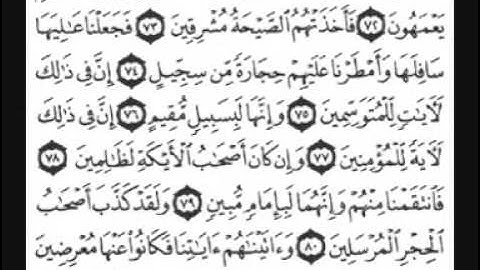 يَعْمَهُونَ ٧٢ فَأَخَذَتْهُمُ الصَّيْحَةُ مُشْرِقِينَ ٧٣ فَجَعَلْنَا عَٰلِيَهَا
سَافِلَهَا وَأَمْطَرْنَا عَلَيْهِمْ حِجَارَةً مِّن سِجِّيلٍ ٧٤ إِنَّ فِي ذَٰلِكَ
لَأٓيَٰتٍ لِّلْمُتَوَسِّمِينَ ٧٥ وَإِنَّهَا لَبِسَبِيلٍ مُّقِيمٍ ٧٦ إِنَّ فِي ذَٰلِكَ
لَأٓيَةً لِّلْمُؤْمِنِينَ ٧٧ وَإِن كَانَ أَصْحَٰبُ الْأَيْكَةِ لَظَٰلِمِينَ ٧٨
فَانتَقَمْنَا مِنْهُمْ وَإِنَّهُمَا لَبِإِمَامٍ مُّبِينٍ ٧٩ وَلَقَدْ كَذَّبَ أَصْحَٰبُ
الْحِجْرِ الْمُرْسَلِينَ ٨٠ وَءَاتَيْنَٰهُمْ ءَايَٰتِنَا فَكَانُوا۟ عَنْهَا مُعْرِضِينَ